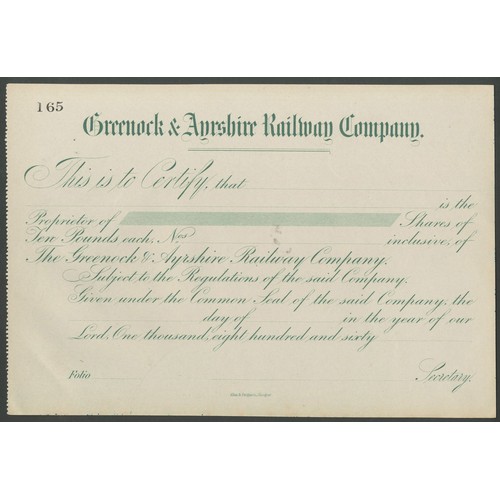 165
Greenock & Ayrshire Railway Company.
This is to Certify, that
is the
Proprietor of Shares of
Ten Pounds each, Nos inclusive, of
The Greenock & Ayrshire Railway Company.
Subject to the Regulations of the said Company.
Given under the Common Seal of the said Company, the
day of in the year of our
Lord, One thousand, eight hundred and sixty
Folio Secretary.